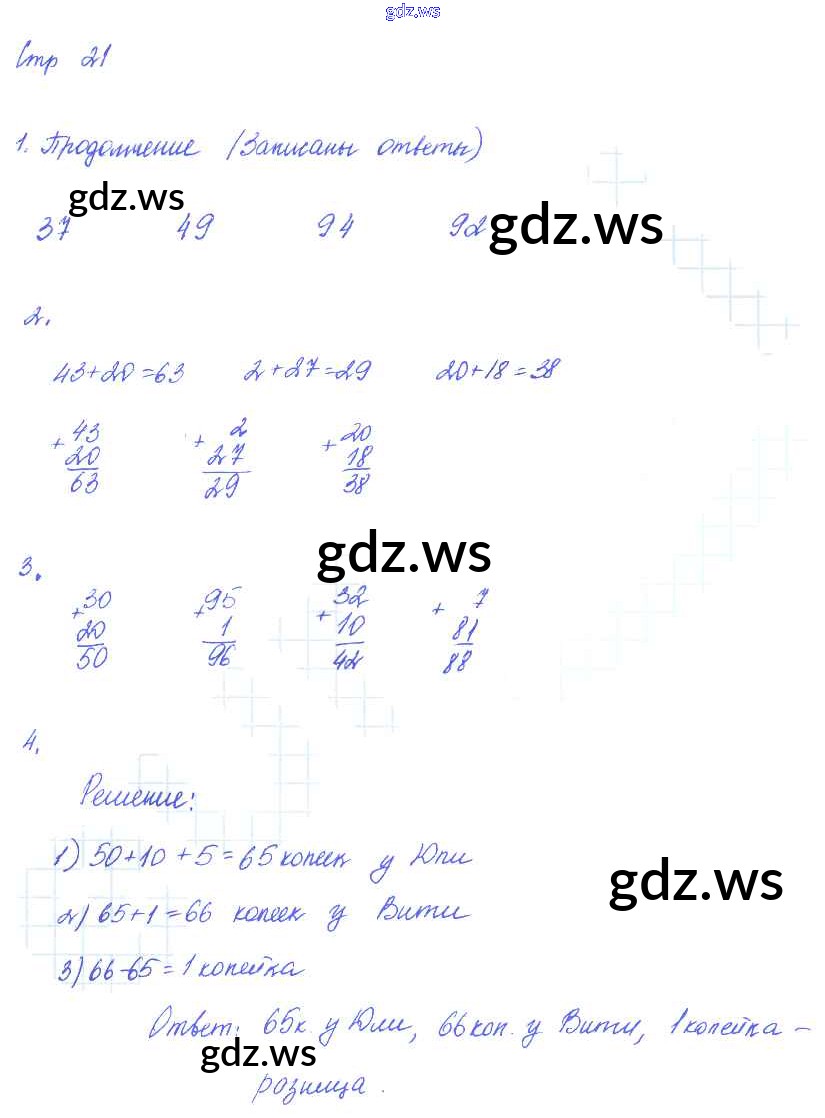 gdz.ws
Стр 21
1. Продолжение (Записаны ответы)
gdz.ws
37 49 94 92 gdz.ws
2.
43+20=63 2+27=29 20+18=38
+ 43 + 2 + 20
20 27 18
63 29 38
gdz.ws
3.
+ 30 + 95 + 32 + 7
20 1 10 81
50 96 42 88
4.
Решение:
1) 50+10+5=65 копеек у Юли
gdz.ws
2) 65+1=66 копеек у Вити
3) 66-65=1 копейка
Ответ: 65к. у Юли, 66 коп. у Вити, 1 копейка –
gdz.ws
разница.